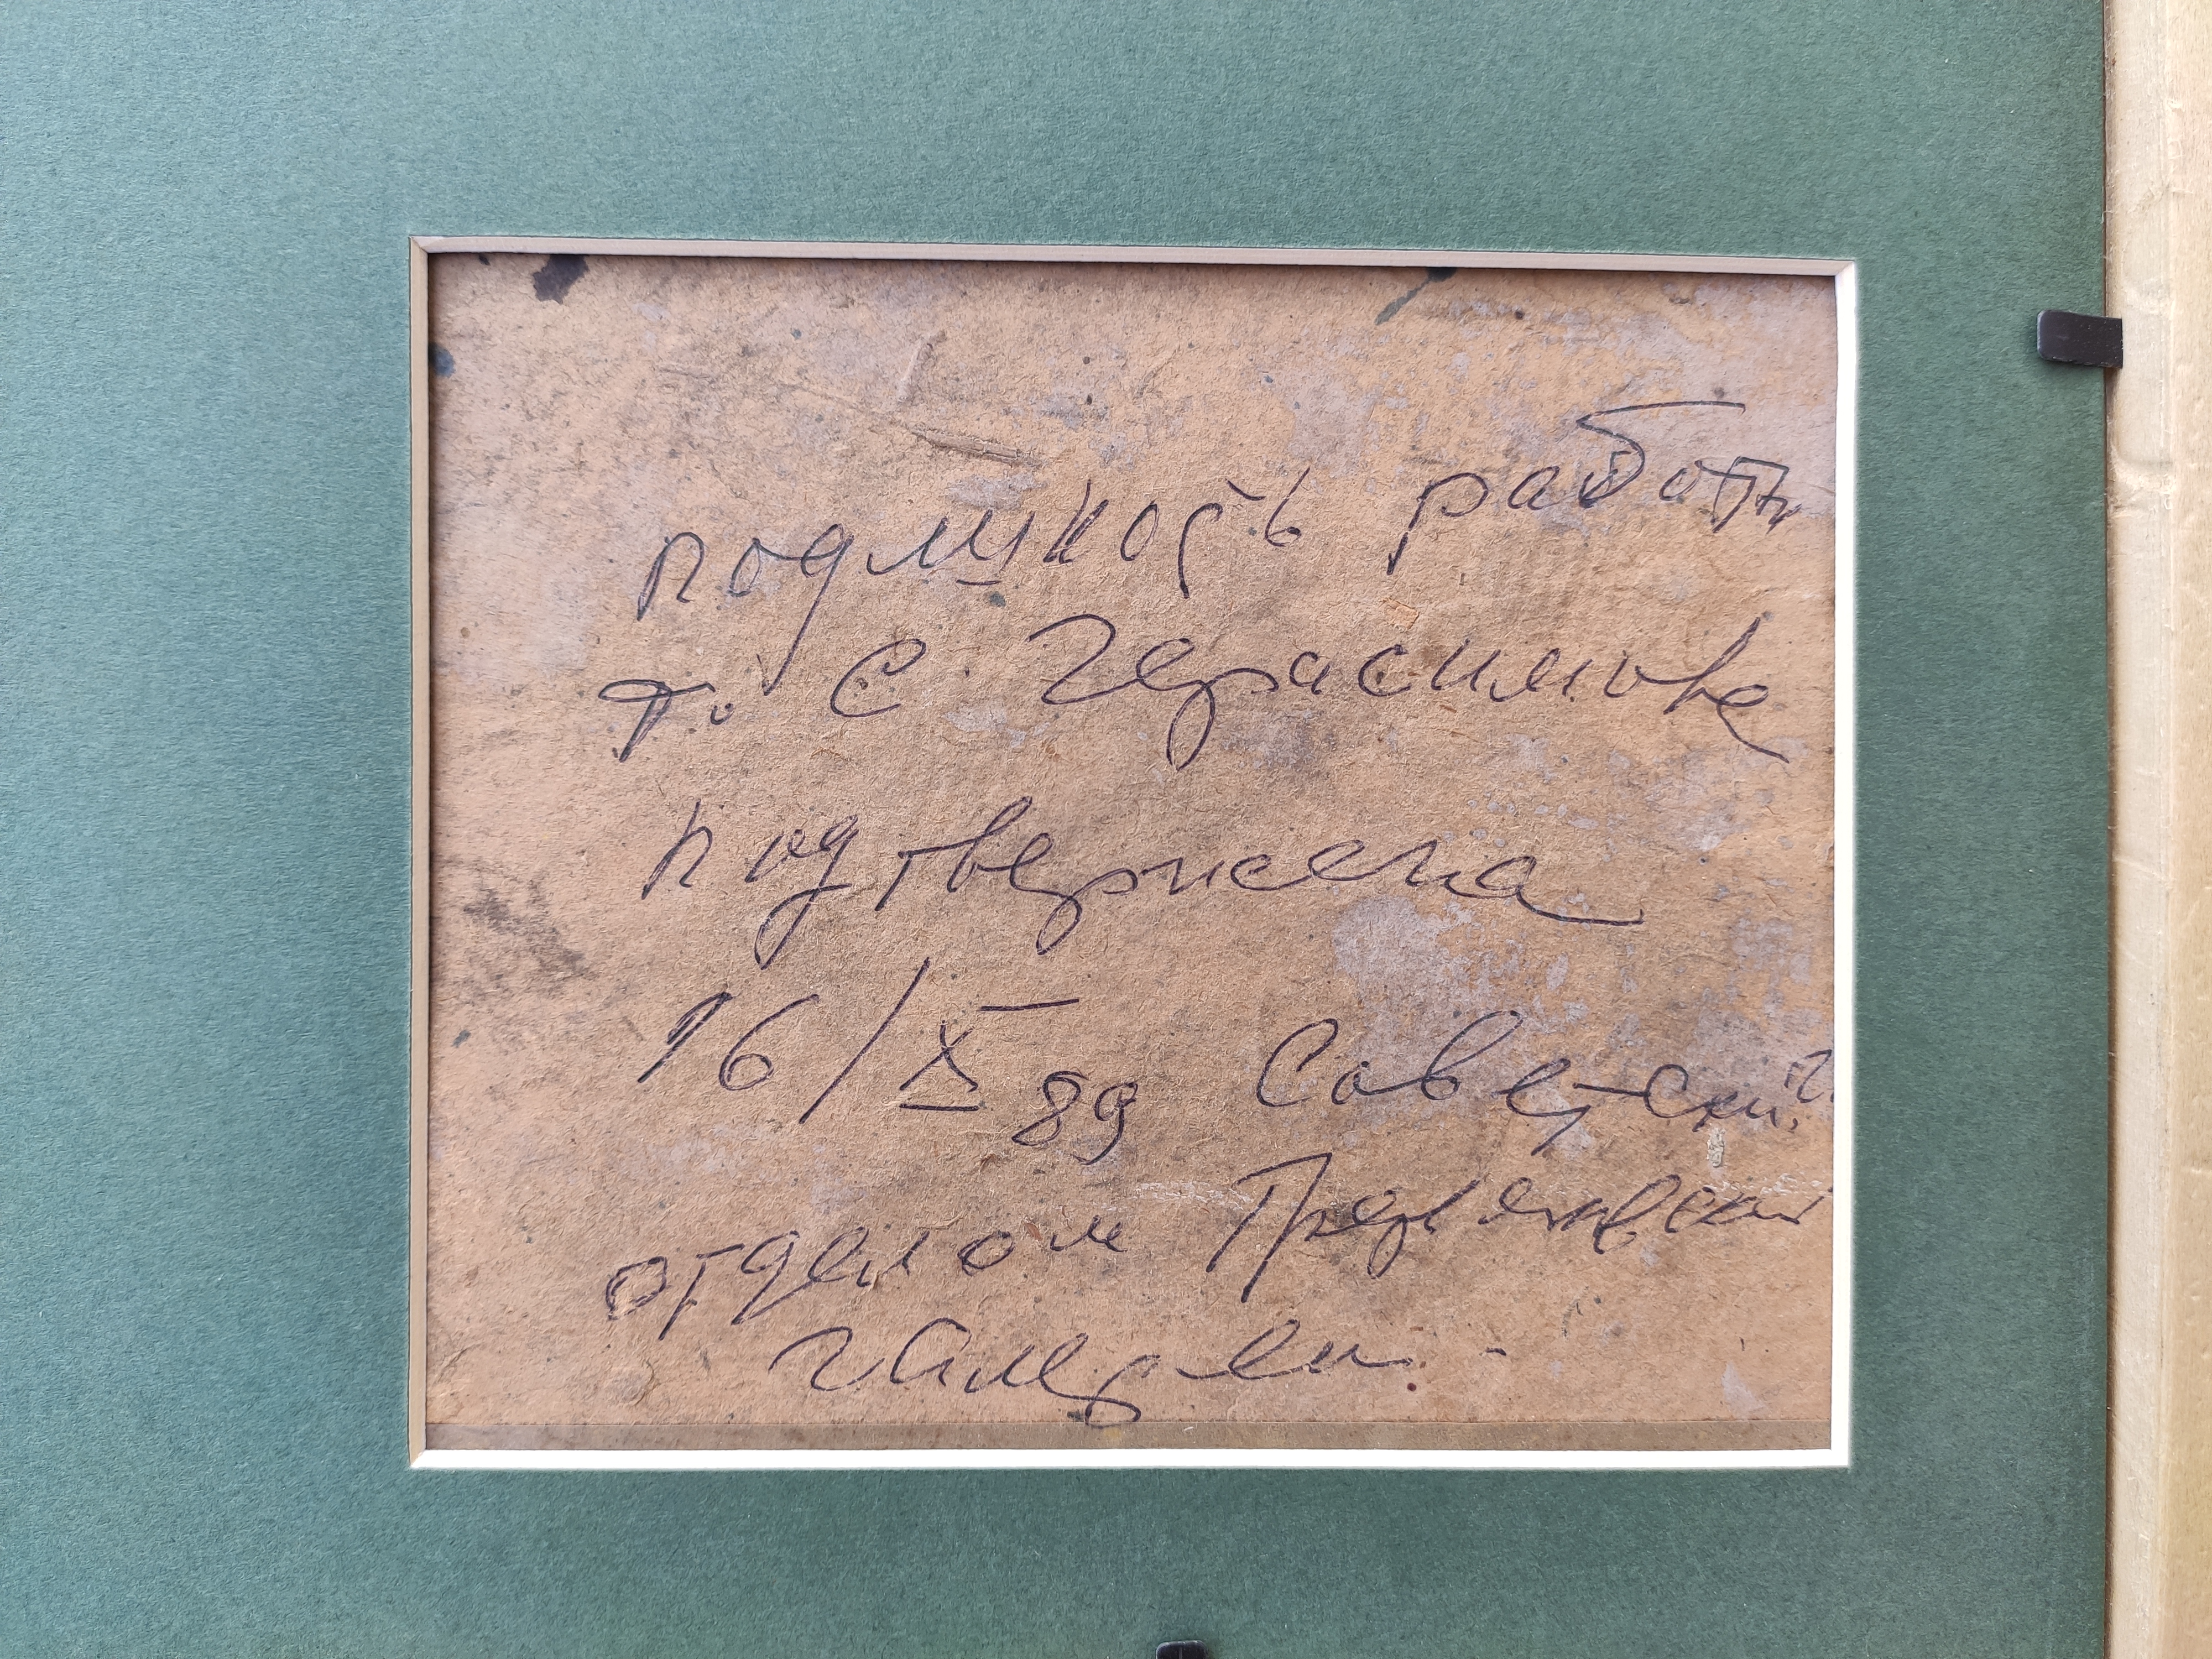 подлиность работы
т. С. Герасимова
подтвержена
16/X 89 Советским
отделом Третьяковской
галереи.